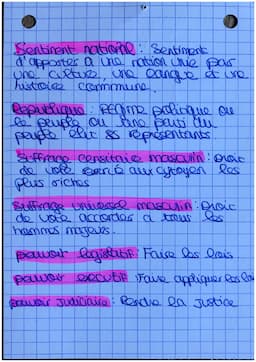 Sentiment national : Sentiments
d'apportes a une nation unie par
une culture, une langue et une
histoire commune.
République : Régime politique ou
le peuple ou une partie du
peuple élit ss représentants
Suffrage censitaire masculin : Droit
de vote exercé aux citoyen les
plus riches
Suffrage universel masculin : Droit
de vote accorder a tous les
hommes majeurs.
pouvoir législatif : Faire les lois.
pouvoir exécutif : Faire appliquer les lois
pouvoir judiciaire : Rendre la justice